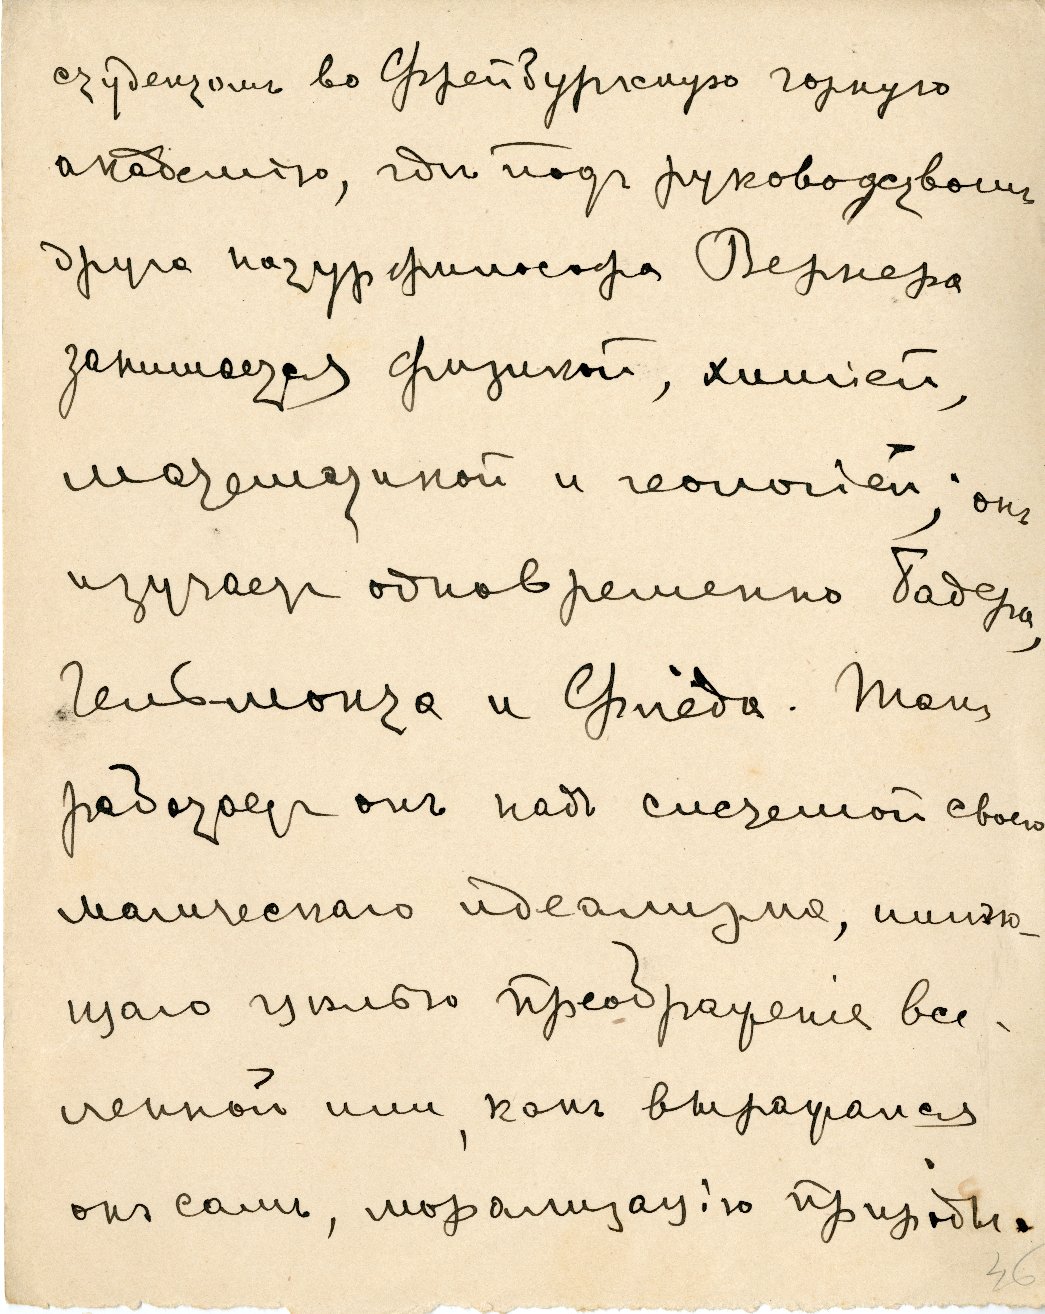 студентомъ во Фрейбургскую горную
академію, гдѣ подъ руководствомъ
друга натурфилософа Вернера
занимается физикой, химіей,
математикой и геологіей; онъ
изучаетъ одновременно Бадера,
Гельмонта и Флёда. Такъ
работаетъ онъ надъ системой своего
магическаго идеализма, имѣю-
щаго цѣлью преображеніе все-
ленной или, какъ выражался
онъ самъ, морализацію природы.
36